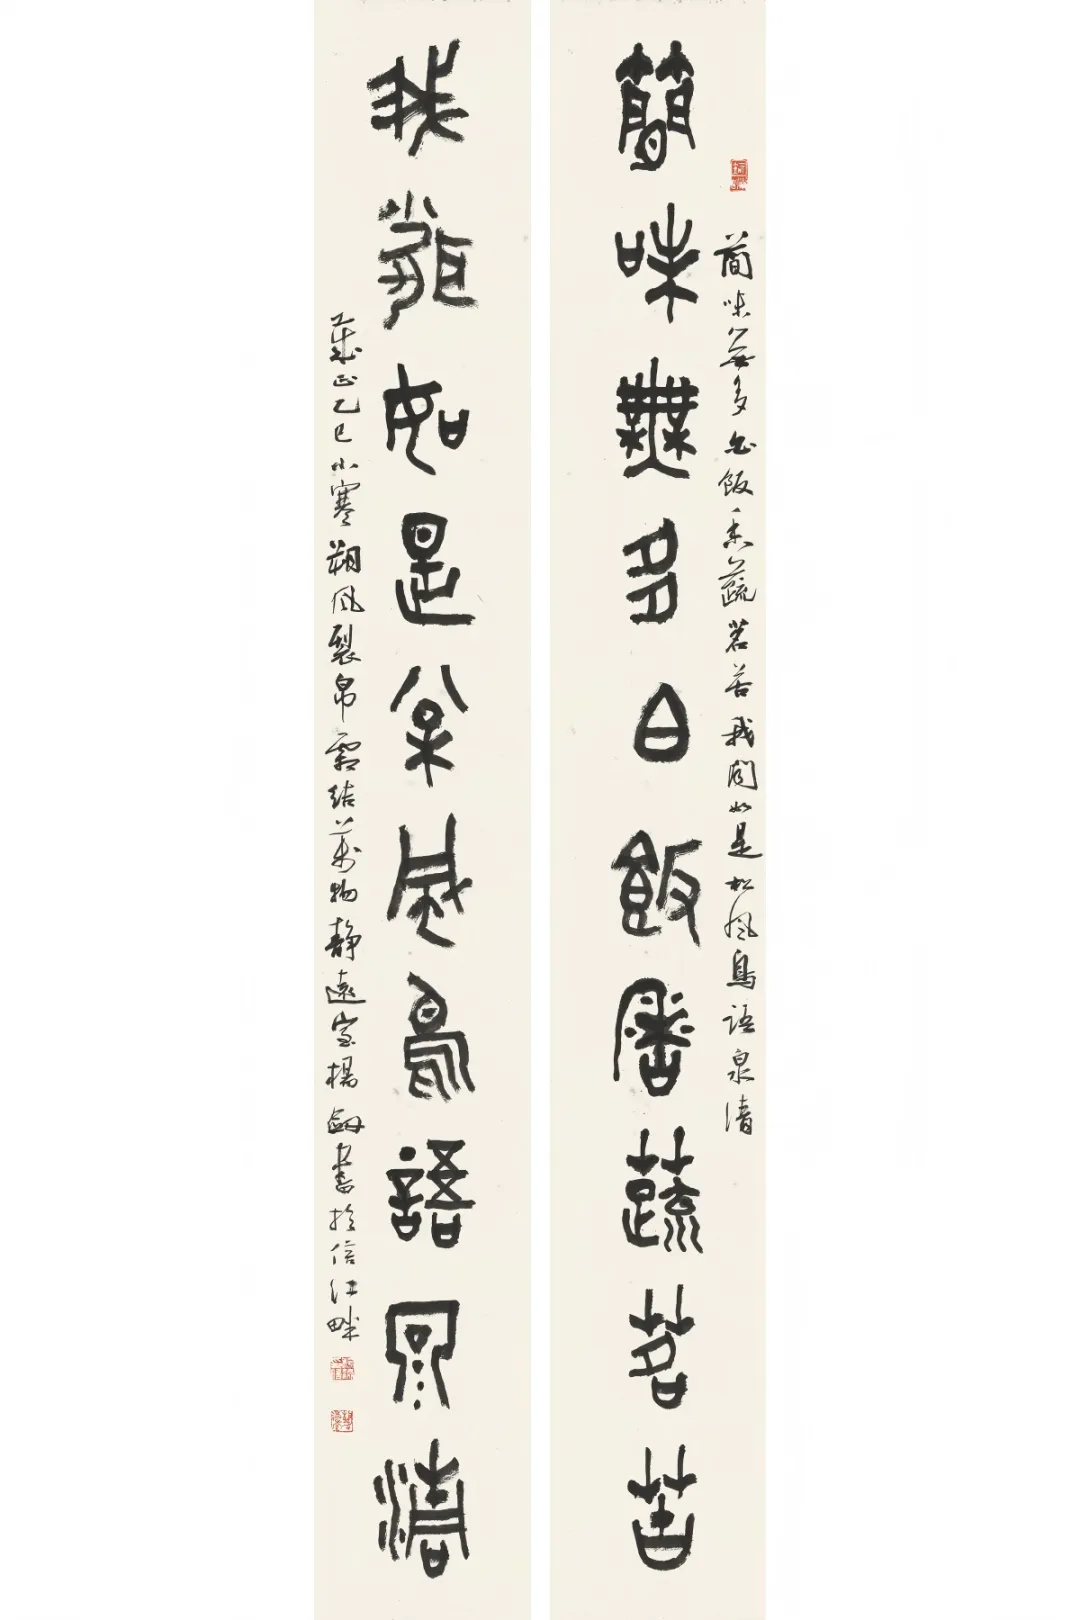 簡味無多白飯香蔬茗苦
我聞如是松風鳥語泉清
簡味無多白飯香蔬茗苦我聞如是松風鳥語泉清
歲正乙巳小寒朔風裂帛霜結萬物靜遠室楊劍書於信江畔